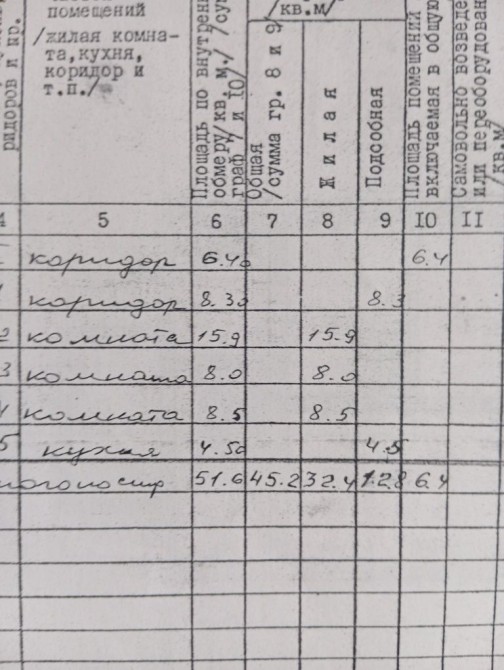 помещений
/жилая комна-
та,кухня,
коридор и
т.п./
ридоров и пр.
Площадь по внутрен
обмеру/кв.м./ /сум
граф / и 10/
/кв.м/
Общая
/сумма гр. 8 и 9/
Жилая
Подсобная
Площадь помещений
включаемая в общую
Самовольно возведе
или переоборудован
/кв.м/
4 5 6 7 8 9 10 11
коридор 6.40 6.4
1 коридор 8.30 8.3
2 комната 15.9 15.9
3 комната 8.0 8.0
4 комната 8.5 8.5
5 кухня 4.50 4.5
51.6 45.2 32.4 12.8 6.4